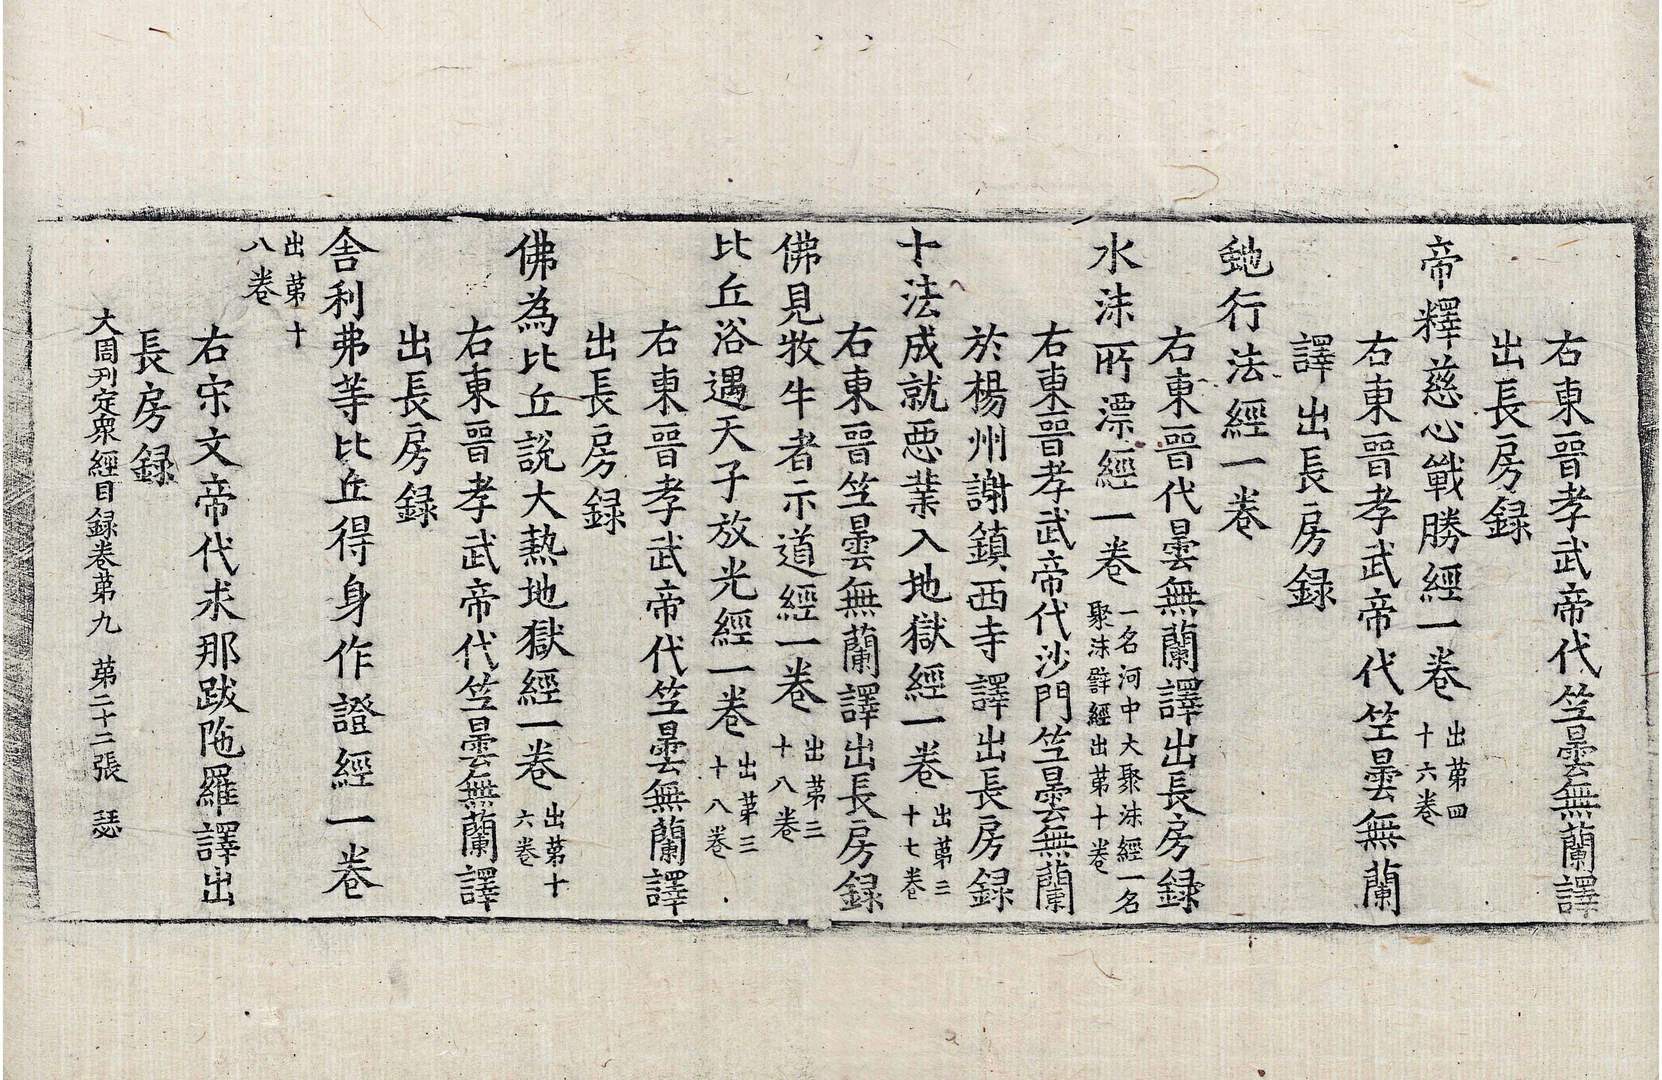 右東晉孝武帝代竺曇無蘭譯
出長房録
帝釋慈心戰勝經一卷 出第四十六卷
右東晉孝武帝代竺曇無蘭
譯出長房録
虵行法經一卷
右東晉代曇無蘭譯出長房録
水沫所漂經一卷 一名河中大聚沫經一名聚沫辟經出第十卷
右東晉孝武帝代沙門竺曇無蘭
於楊州謝鎮西寺譯出長房録
十法成就惡業入地獄經一卷 出第三十七卷
右東晉竺曇無蘭譯出長房録
佛見牧牛者示道經一卷 出第三十八卷
比丘浴遇天子放光經一卷 出第三十八卷
右東晉孝武帝代竺曇無蘭譯
出長房録
佛為比丘說大熱地獄經一卷 出第十六卷
右東晉孝武帝代竺曇無蘭譯
出長房録
舎利弗等比丘得身作證經一卷
出第十八卷
右宋文帝代求那跋陁羅譯出
長房録
大周刋定衆經目録卷第九 第二十二張 瑟